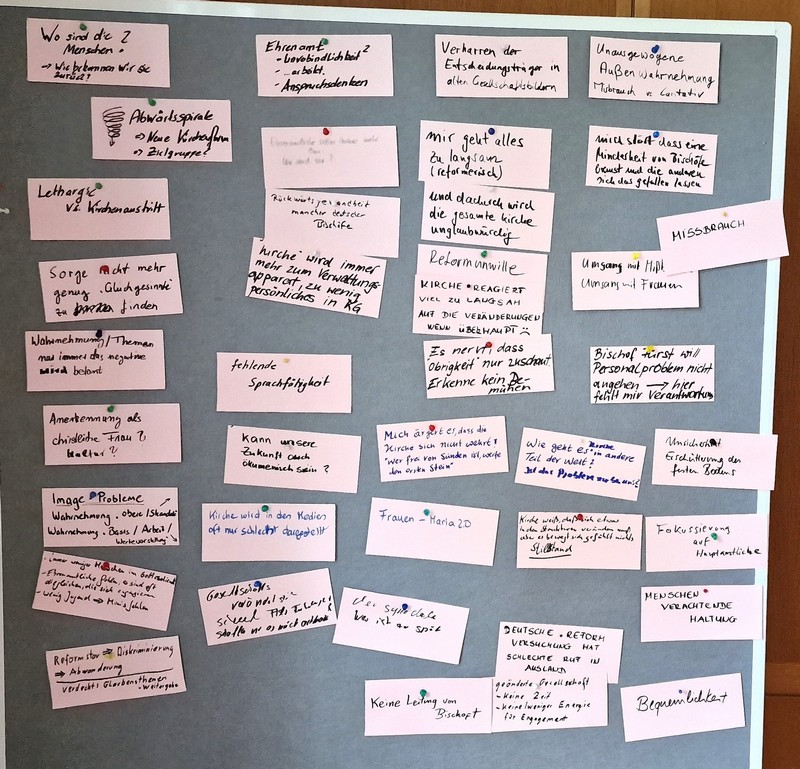 Wo sind die ?
Menschen.
→ Wie bekommen wir sie
zurück?
Ehrenamt ?
- Unverbindlichkeit
- Anspruchsdenken
Verharren der
Entscheidungsträger in
alten Gesellschaftsbildern
Unausgewogene
Außenwahrnehmung
Misbrauch vs. Caritativ
Abwärtsspirale
→ Neue Kirchenform
→ Zielgruppe?
mir geht alles
zu langsam
(reformerisch)
mich stört dass eine
Minderheit von Bischöfe
bremst und die anderen
sich das gefallen lassen
Lethargie
vs. Kirchenaustritt
Rückwärtsgewandheit
mancher deutscher
Bischöfe
und dadurch wird
die gesamte Kirche
unglaubwürdig
MISSBRAUCH
Sorge nicht mehr
genug Gleichgesinnte
zu finden
Kirche wird immer
mehr zum Verwaltungs-
apparat, zu wenig
persönliches in KG
Reformunwille
KIRCHE REAGIERT
VIEL ZU LANGSAM
AUF DIE VERÄNDERUNGEN
WENN ÜBERHAUPT
Umgang mit
Umgang mit Frauen
Wahrnehmung/Themen
nur immer das negative
wird betont
fehlende
Sprachfähigkeit
Es nervt dass
Obrigkeit nur zuschaut.
Erkenne kein Be-
mühen
Bischof fürst will
Personalproblem nicht
angehen → hier
fehlt mir Verantwortung
Anerkennung als
christliche Frau?
Kultur?
Kann unsere
Zukunft auch
ökumenisch sein?
Mich ärgert es, dass die
Kirche sich nicht wehrt!
"wer frei von Sünden ist, werfe
den ersten Stein"
Wie geht es Kirche
in andere
Teil der Welt?
Ist das Problem nur bei uns?
Unsicherheit
Erschütterung des
festen Bodens
Image Probleme
Wahrnehmung - obere / Skandal
Wahrnehmung - Basis / Arbeit /
Wertevorstellung
Kirche wird in den Medien
oft nur schlecht dargestellt
Frauen - Maria 2.0
Kirche weiß, daß sich etwas
in den Strukturen verändern muß
aber es bewegt sich gefühlt nichts
Stillstand
Fokussierung
auf
Hauptamtliche
immer weniger Menschen im Gottesdienst
- Ehrenamtliche fehlen, es sind oft
dieselben, die sich engagieren
- wenig Jugend → Minis fehlen
Gesellschaft
verändert sich
MENSCHEN
VERACHTENDE
HALTUNG
Reformstau → Diskriminierung
→ Abwanderung
verdeckt Glaubensthemen
- Weitergabe
DEUTSCHE REFORM
VERSUCHUNG HAT
SCHLECHTE RUF IN
AUSLAND
Keine Leitung von
Bischof
geänderte Gesellschaft
- Keine Zeit
- Keine/weniger Energie
für Engagement
Bequemlichkeit